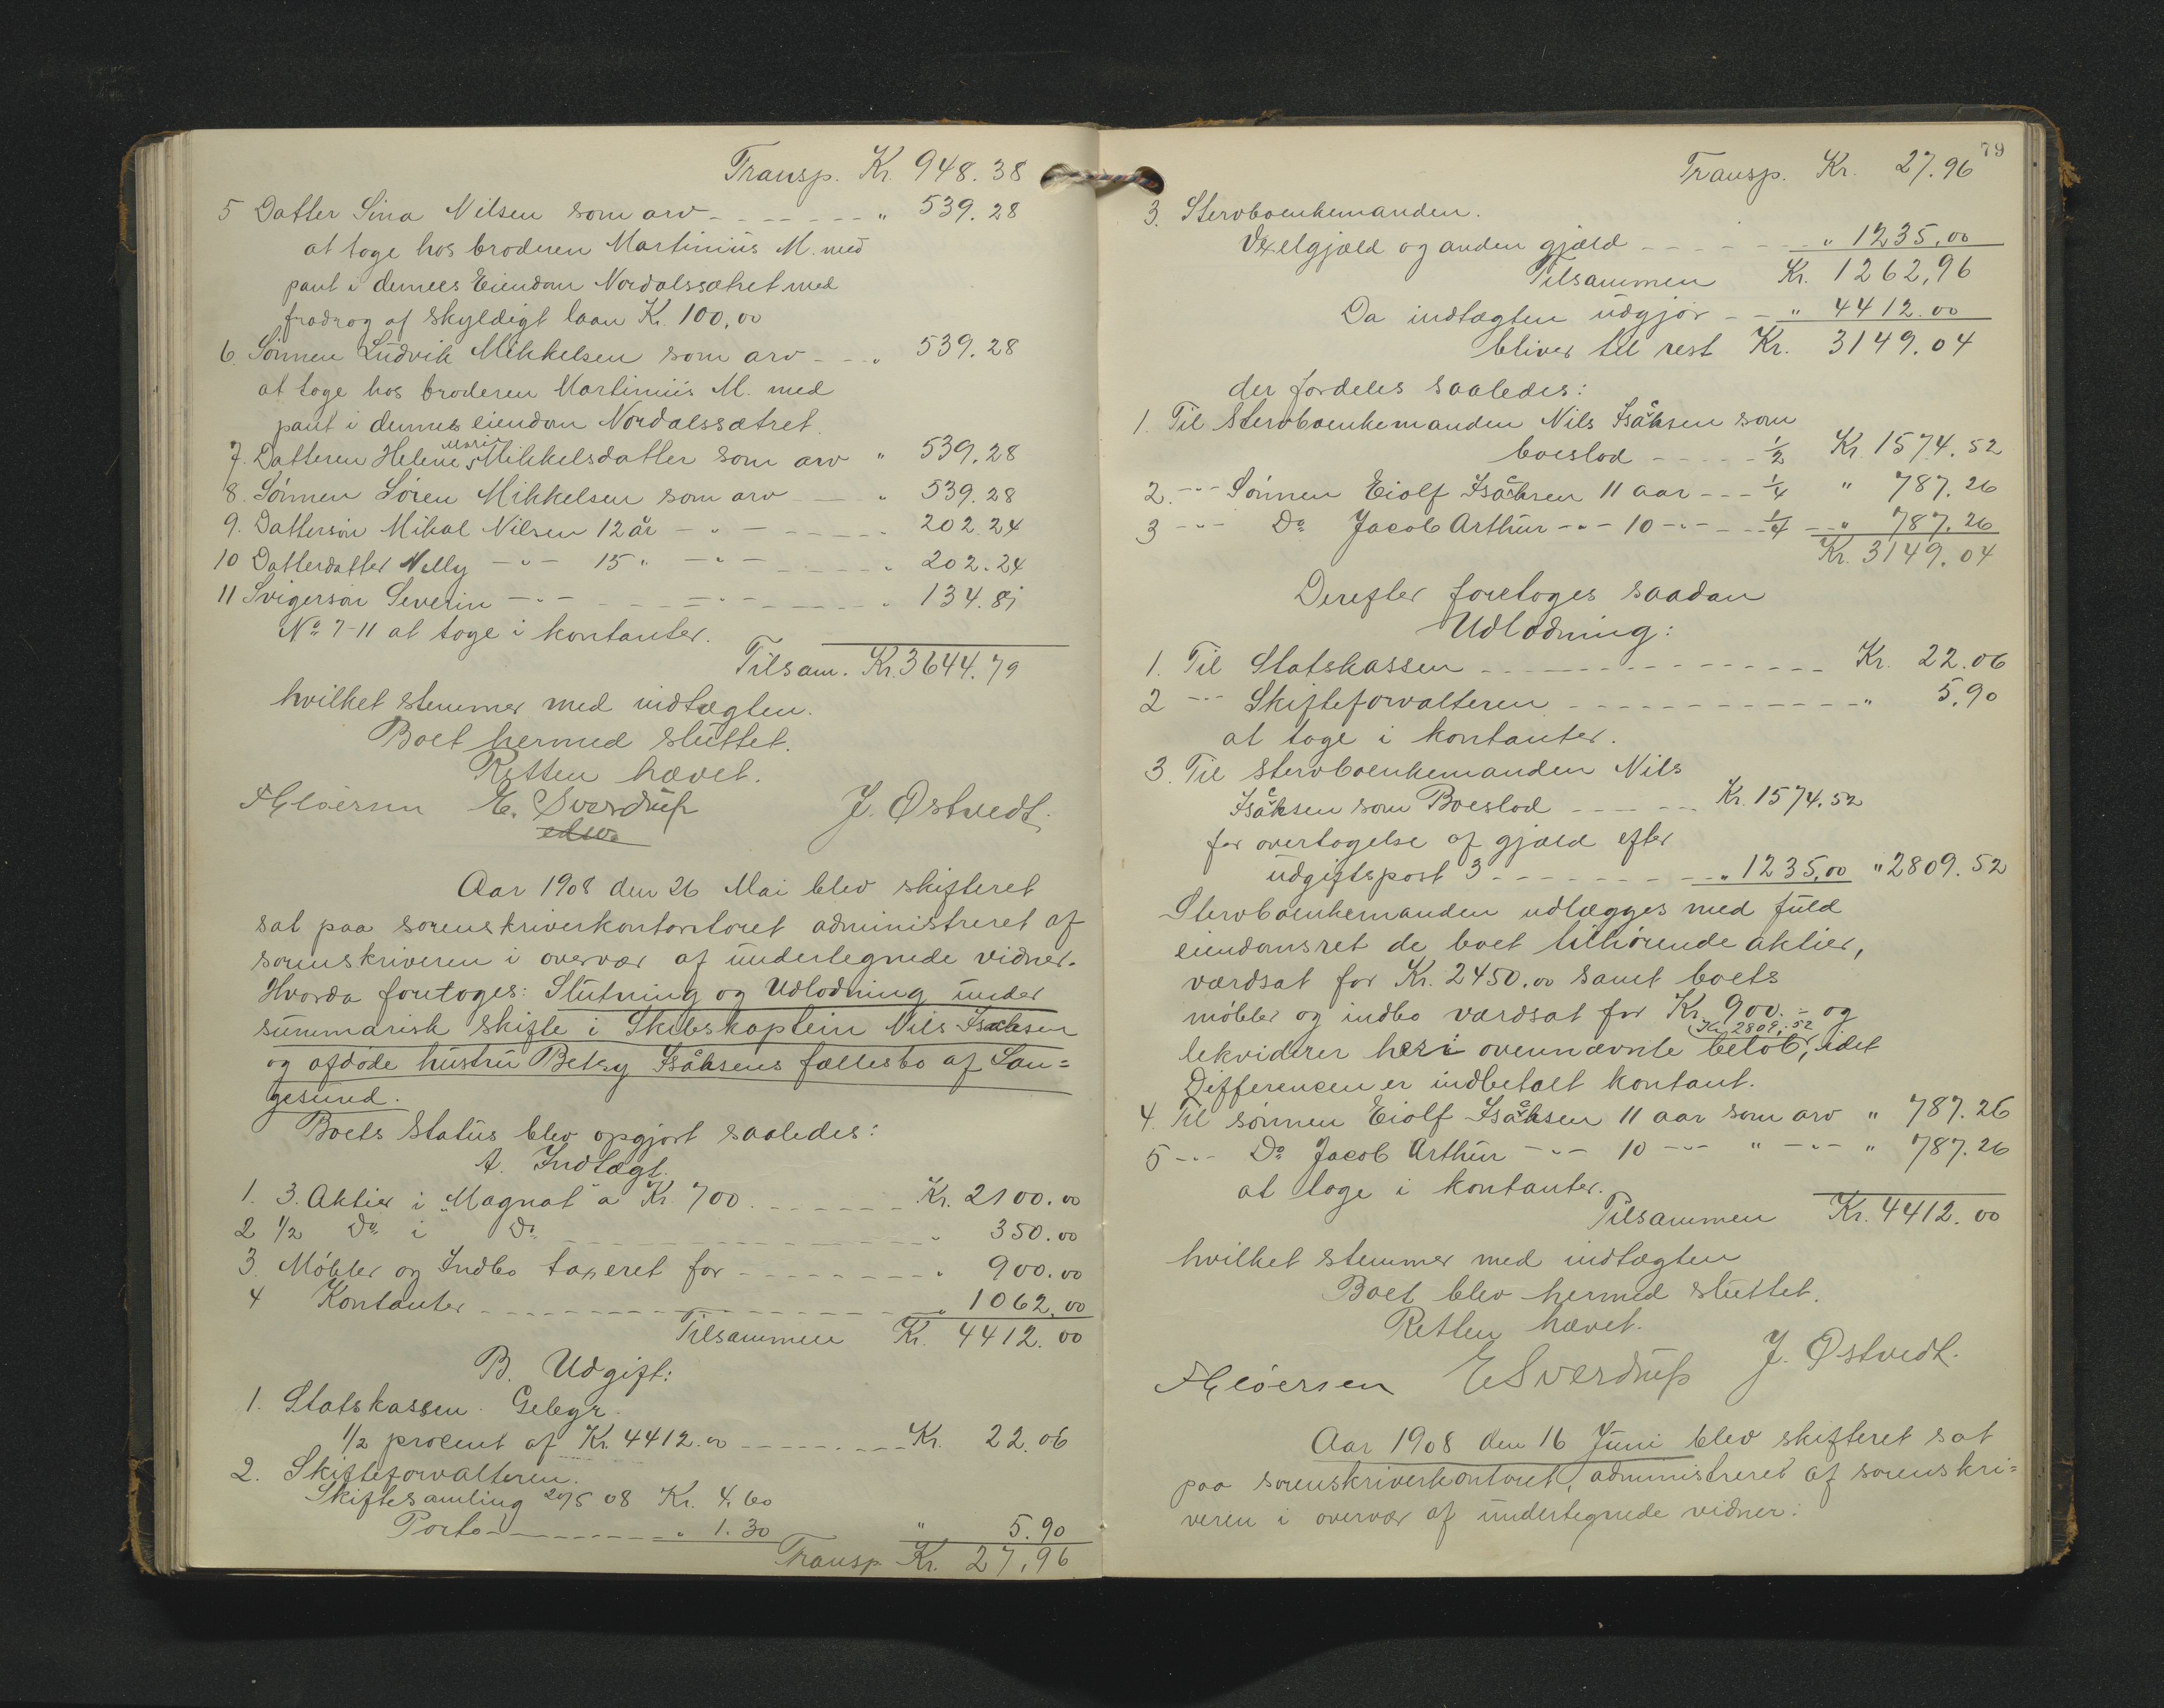 Transp. Kr. 948.38
5 Datter Sina Nilsen som arv - - - - - - - " 539.28
at tage hos broderen Martinius M. med
pant i dennes Eiendom Nordalssætret med
fradrag af skyldigt laan Kr. 100,00
6. Sønnen Ludvik Mikkelsen som arv - - - " 539.28
at tage hos broderen Martinius M. med
pant i dennes eiendom Nordalssætret.
7. Datteren Helene Marie Mikkelsdatter som arv " 539.28
8. Sønnen Søren Mikkelsen som arv - - - " 539.28
9. Dattersøn Mikal Nilsen 12 år - " - - - - - " 202.24
10 Datterdatter Nelly - " - 15 " - " - - - - - " 202.24
11 Svigersøn Severin - " - - - - - " - - - - - " 134.81
No 7-11 at tage i kontanter.
Tilsam. Kr. 3644.79
hvilket stemmer med indtægten.
Boet hermed sluttet.
Retten hævet.
E. Sverdrup J. Østvedt.
Aar 1908 den 26 Mai blev skifteret
sat paa sorenskriverkontontoret administreret af
sorenskriveren i overvær af undertegnede vidner.
Hvorda foretoges: Slutning og Udlodning under
summarisk skifte i Skibskaptein Nils Isaksen
og afdøde hustru Betsy Isåksens fællesbo af Lan=
gesund.
Boets Status blev opgjort saaledes:
A. Indtægt.
1. 3. Aktier i "Magnat" a Kr. 700. - - - - - - Kr. 2100.00
2 1/2 Do i Do - - - - - - - - - - - " 350.00
3. Møbler og Indbo taxeret for - - - - - - - " 900.00
4 Kontanter - - - - - - - - - - - - - - " 1062.00
Tilsammen Kr. 4412.00
B. Udgift:
1. Statskassen. Gebyr.
1/2 procent af Kr. 4412.00 - - - - - - - Kr. 22.06
2. Skifteforvalteren.
Skiftesamling 20/5 08 Kr. 4.60
Porto - - - - - - - " 1.30 " 5.90
Transp. Kr. 27,96
79
Transp. Kr. 27.96
3. Stervboenkemanden.
Vexelgjæld og anden gjæld - - - - - - " 1235,00
Tilsammen Kr. 1262,96
Da indtægten udgjør - - " 4412.00
bliver til rest Kr. 3149.04
der fordeles saaledes:
1. Til Stervboenkemanden Nils Isåksen som
boeslod - - - - - 1/2 Kr. 1574.52
2. - " - Sønnen Eiolf Isåksen 11 aar - - - 1/4 " 787.26
3 - " - Do Jacob Arthur - " - 10 - " - - - 1/4 - - " 787.26
Kr. 3149.04
Derefter foretoges saadan
Udlodning:
1. Til Statskassen - - - - - - - - - - - - - - Kr. 22.06
2 - " - Skifteforvalteren - - - - - - - - - - - " 5.90
at tage i kontanter.
3. Til stervboenkemanden Nils
Isåksen som Boeslod - - - - - Kr. 1574.52
for overtagelse af gjæld efter
udgiftspost 3 - - - - - - - - - " 1235,00 " 2809.52
Stervboenkemanden udlægges med fuld
eiendomsret de boet tilhørende aktier,
værdsat for Kr. 2450.00 samt boets
møbler og indbo værdsat for Kr. 900.- og
lekviderer heri ovennævnte beløb, Kr 2809.52, idet
Differencen er indbetalt kontant.
4. Til sønnen Eiolf Isåksen 11 aar som arv " 787.26
5 - " - Do Jacob Arthur - " - 10 - " - " - " - " 787.26
at tage i kontanter.
Tilsammen Kr. 4412.00
hvilket stemmer med indtægten
Boet blev hermed sluttet.
Retten hævet.
E Sverdrup J. Østvedt.
Aar 1908 den 16 Juni blev skifteret sat
paa sorenskriverkontoret, administreret af sorenskri=
veren i overvær af undertegnede vidner: